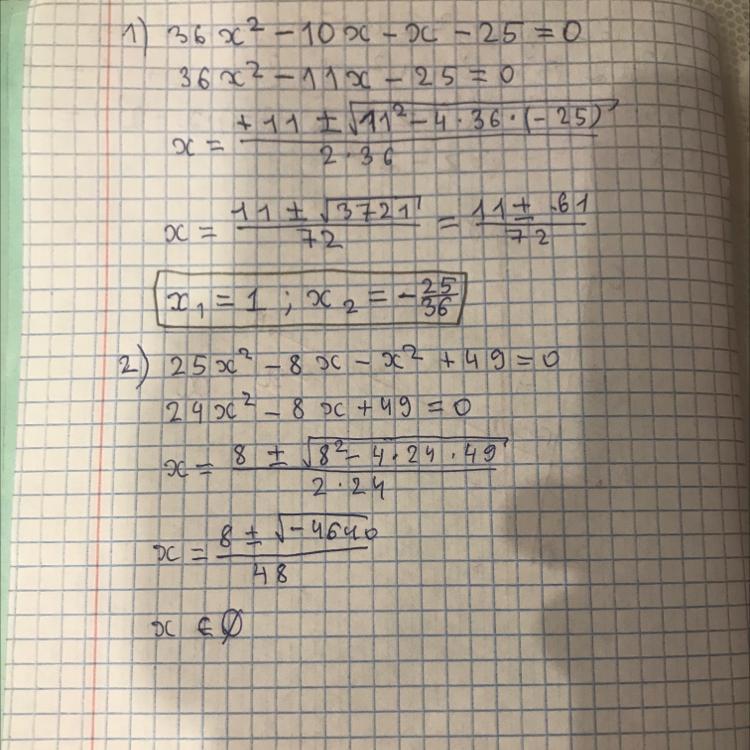 1) 36x² - 10x - x - 25 = 0
36x² - 11x - 25 = 0
x = (+11 ± √(11² - 4·36·(-25))) / (2·36)
x = (11 ± √3721) / 72 = (11 ± 61) / 72
x₁ = 1 ; x₂ = -25/36
2) 25x² - 8x - x² + 49 = 0
24x² - 8x + 49 = 0
x = (8 ± √(8² - 4·24·49)) / (2·24)
x = (8 ± √(-4640)) / 48
x ∈ ∅